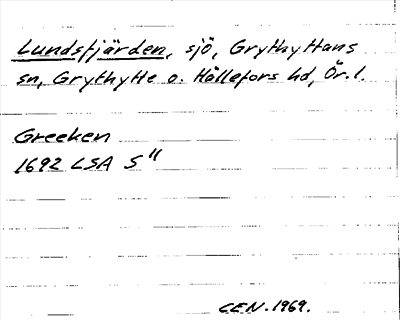 Lundsfjärden, sjö, Grythyttans
sn, Grythytte o. Hällefors hd, Ör. l.
Greeken
1692 LSA S"
CEN. 1969.